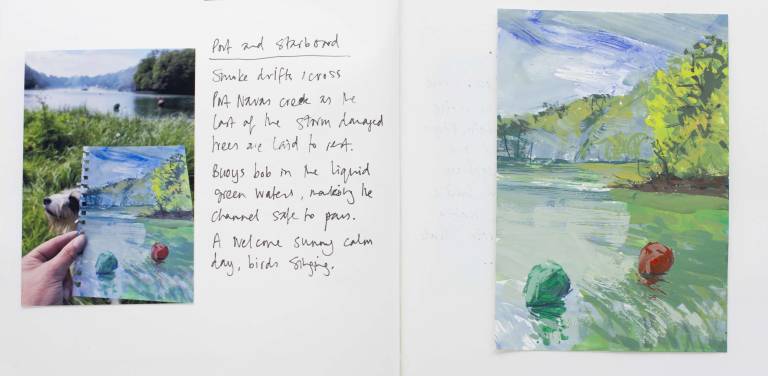 Port and Starboard
Smoke drifts across
Port Navas creek as the
last of the storm damaged
trees are laid to rest.
Buoys bob in the liquid
green waters, making the
channel safe to pass.
A welcome sunny calm
day, birds singing.